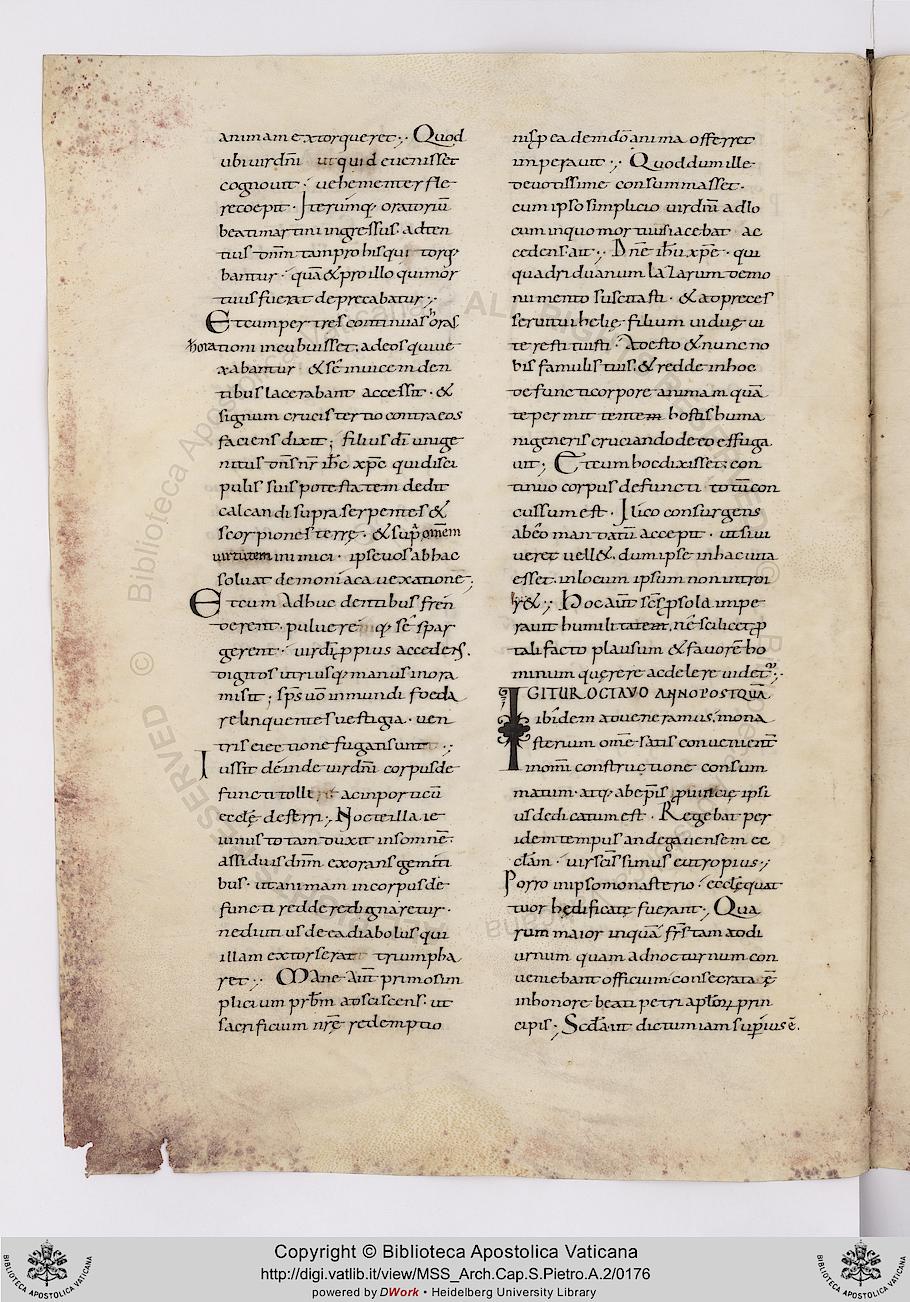 animam extorqueret·, Quod
ubi uir dn̄i ut quid euenisset
cognouit· uehementer fle
re coepit· Iterūmq; oratoriū
beati martini ingressus. adten
tius dn̄m tam pro his qui torq;
bantur· quā & pro illo qui mor
tuus fuerat deprecabatur·,
Et cum per tres continuas horas
horationi incubuisset. ad eos qui ue
xabantur & sē inuicem den
tibus lacerabant accessit· &
signum crucis tertio contra eos
faciens dixit; filius dī unige
nitus dn̄s nr̄ ihc̄ xp̄c qui disci
pulis suis potestatem dedit
calcandi supra serpentes &
scorpiones terrę· & sup̄ om̄em
uirtutem inimici· ipse uos ab hac
soluat demoniaca uexationē;
Et cum adhuc dentibus frēn
derent· puluereēmq; sē spar
gerent· uir dī p̱pius accedens.
digitos utriusq; manus in ora
misit; sp̄s uō inmundi foeda
relinquentes uestigia· uen
tris eiectione fugati sunt·,
Iussit deinde uir dn̄i corpus de
functi tolli ac in porticū
ecclę deferri·, Nocte illa ie
iunus totam duxit insomnē·
assiduis dn̄m exorans gemiti
bus· ut animam in corpus de
functi reddere dignaretur·
ne diutius de ea diabolus qui
illam extorserat triumpha
ret·, Mane aūt primo sim
plicium prb̄m adsciscens. ut
sacrificium nrē redemptio
nis p̱ eadem dō anima offerret
imperauit·, Quod dum ille
deuotissime consummasset·
cum ipso simplicio uir dn̄i ad lo
cum in quo mortuus iacebat ac
cedens ait·, Dn̄e ih̄u xp̄e· qui
quadriduanum lazarum de mo
numento suscitasti· & ad preces
serui tui helię filium uiduę ui
te restituisti· Adesto & nunc no
bis famulis tuis. & redde in hoc
defuncti corpore animam quā
te permittentem hostis huma
ni generis cruciando de eo effuga
uit; Et cum hoc dixisset. con
tinuo corpus defuncti totū con
cussum est· Ilico consurgens
ab eō mandatū accepit· ut si ui
ueret uell&. dum ipse in hac uita
esset. in locum ipsum non introi
r&·, Hoc aūt sc̄s p̱ sola impe
rauit humilitatem. nē scilicet p̱
tali facto plausum & fauorē ho
minum quęrere ac delere uidet̄·,
IGITUR OCTAVO ANNO POSTQUĀ
ibidem adueneramus. mona
sterium om̄e satis conuenient̄
in om̄i constructione consum
matum· atq; ab ep̄is p̱uincię ipsi
us dedicatum est· Regebat per
idem tempus andegauensem ec
clām· uir sc̄issimus eutropius·,
Porro in ipso monasterio ecclę quat
tuor hędificatę fuerant·, Qua
rum maior in quā frs̄ tam ad di
urnum quam ad nocturnum con
ueniebant officium. consecrata ē
in honore beati petri aplōrum prin
cipis; Scd̄a ut dictum iam sup̄ius ē.
Copyright © Biblioteca Apostolica Vaticana
http://digi.vatlib.it/view/MSS_Arch.Cap.S.Pietro.A.2/0176
powered by DWork • Heidelberg University Library
BIBLIOTECA APOSTOLICA VATICANA
BIBLIOTECA APOSTOLICA VATICANA